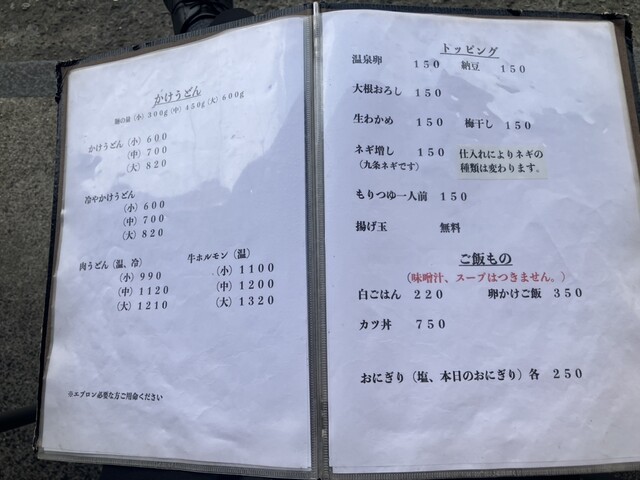 かけうどん
麺の量(小)300g(中)450g(大)600g
かけうどん(小)600
(中)700
(大)820
冷やかけうどん
(小)600
(中)700
(大)820
肉うどん(温、冷)
(小)990
(中)1120
(大)1210
牛ホルモン(温)
(小)1100
(中)1200
(大)1320
※エプロン必要な方ご用命ください
トッピング
温泉卵 150 納豆 150
大根おろし 150
生わかめ 150 梅干し 150
ネギ増し 150
(九条ネギです)
仕入れによりネギの
種類は変わります。
もりつゆ一人前 150
揚げ玉 無料
ご飯もの
(味噌汁、スープはつきません。)
白ごはん 220 卵かけご飯 350
カツ丼 750
おにぎり(塩、本日のおにぎり)各 250